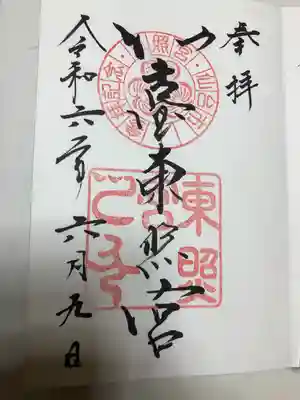 奉拝
仙臺東照宮
令和六年六月九日
東照
仙台市